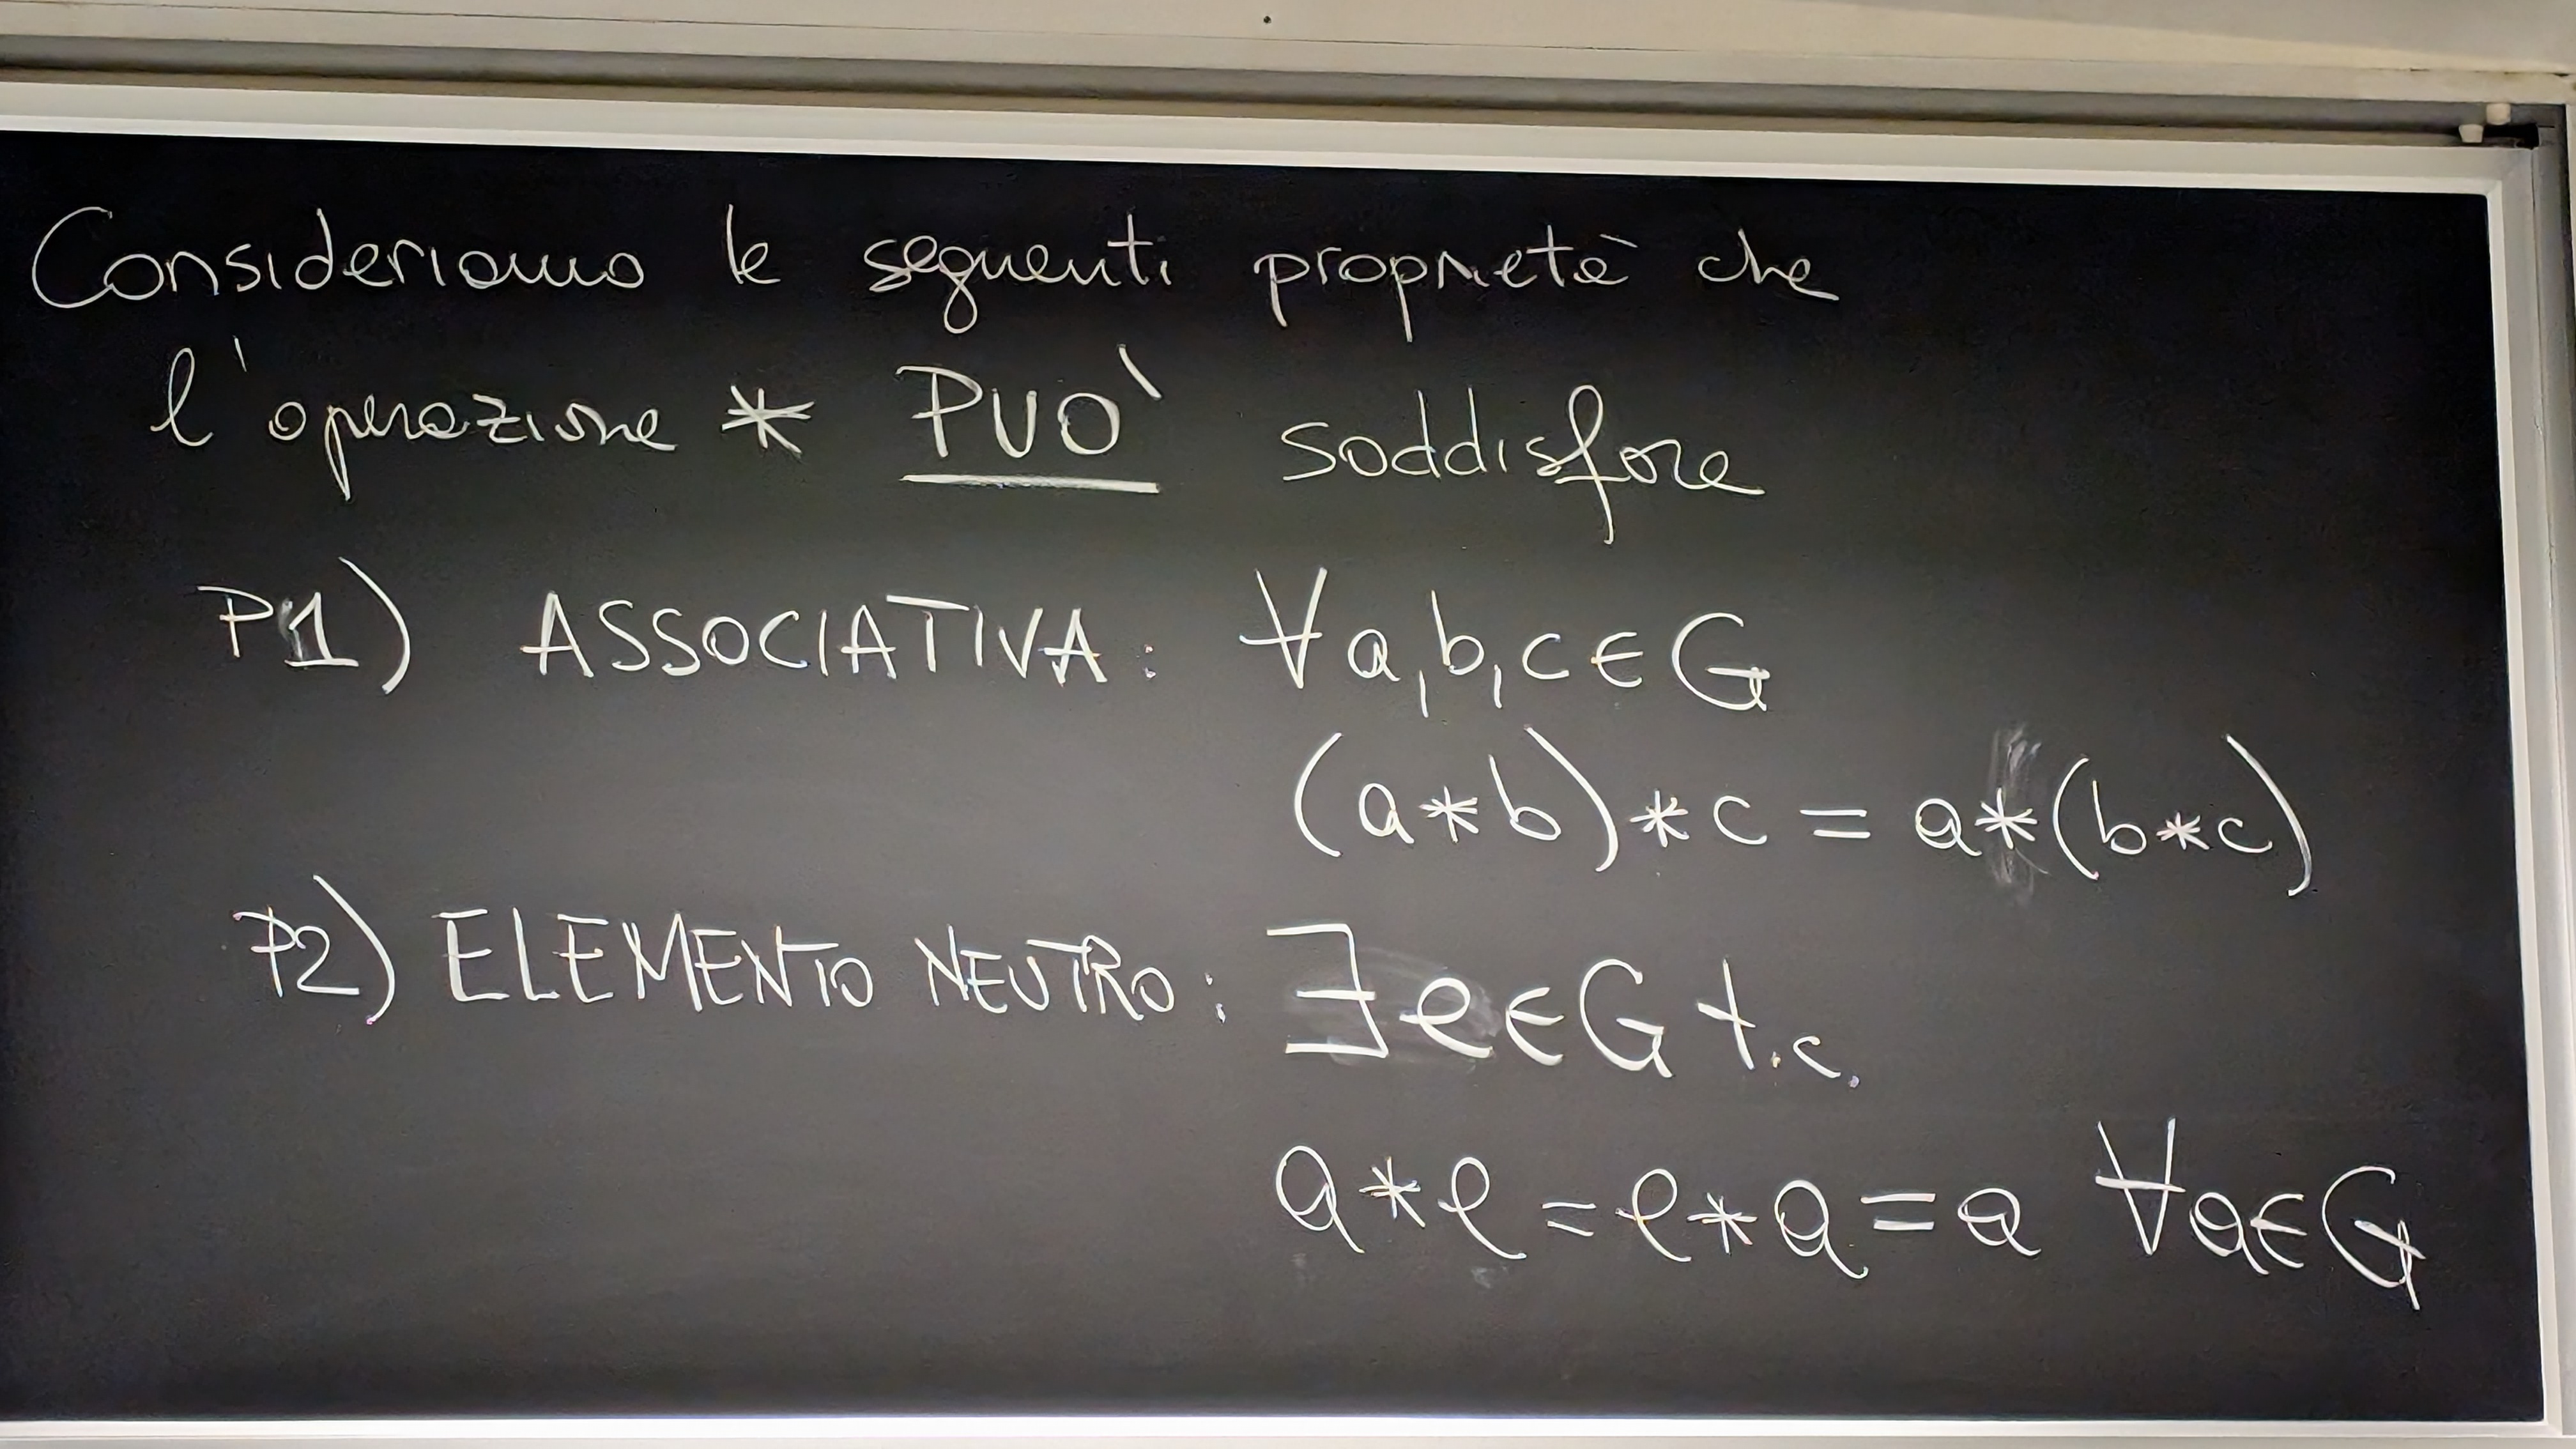 Consideriamo le seguenti proprietà che
l'operazione * PUO' soddisfare
P1) ASSOCIATIVA: ∀a,b,c∈G
(a*b)*c = a*(b*c)
P2) ELEMENTO NEUTRO: ∃e∈G t.c.
a*e=e*a=a ∀a∈G